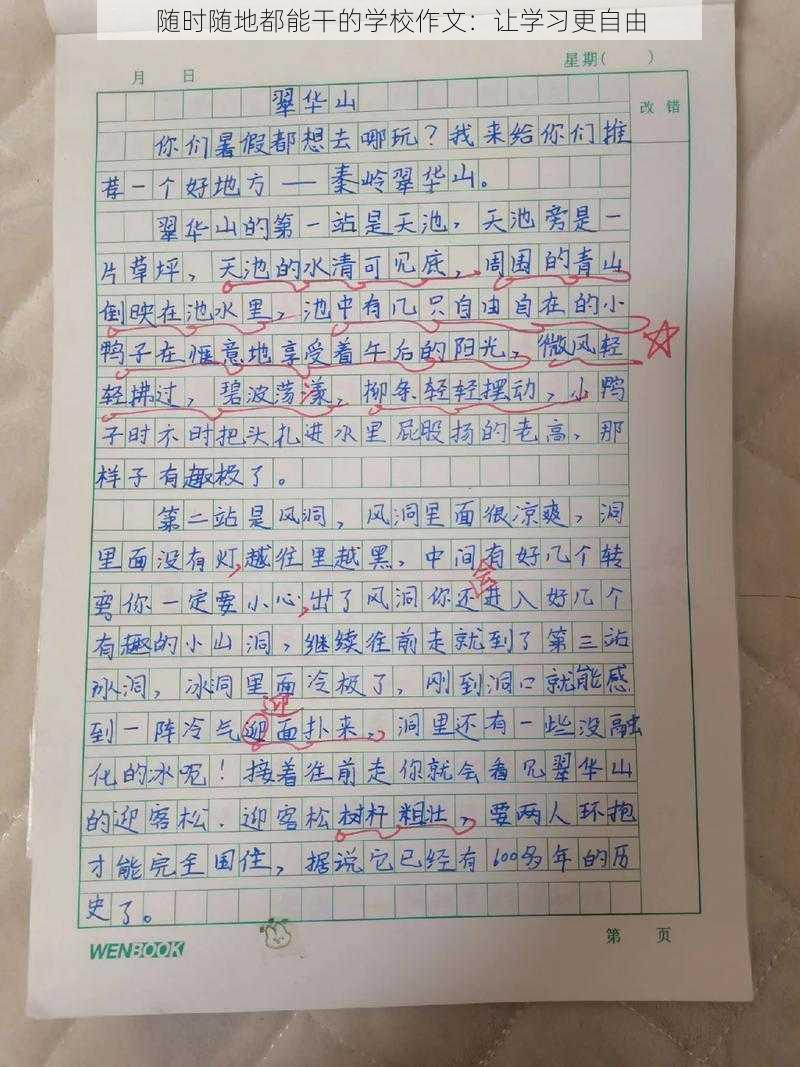 随时随地都能干的学校作文：让学习更自由
月 日
星期( )
改 错
翠华山
你们暑假都想去哪玩？我来给你们推
荐一个好地方——秦岭翠华山。
翠华山的第一站是天池，天池旁是一
片草坪，天池的水清可见底，周围的青山
倒映在池水里，池中有几只自由自在的小
鸭子在惬意地享受着午后的阳光，微风轻
轻拂过，碧波荡漾，柳条轻轻摆动，小鸭
子时不时把头扎进水里屁股扬的老高，那
样子有趣极了。
第二站是风洞，风洞里面很凉爽，洞
里面没有灯，越往里越黑，中间有好几个转
弯你一定要小心，出了风洞你还会进入好几个
有趣的小山洞，继续往前走就到了第三站
冰洞，冰洞里面冷极了，刚到洞口就能感
迎
到一阵冷气迎面扑来，洞里还有一些没融
化的冰呢！接着往前走你就会看见翠华山
的迎客松．迎客松树杆粗壮，要两人环抱
才能完全围住，据说它已经有600多年的历
史了。
WENBOOK
第 页